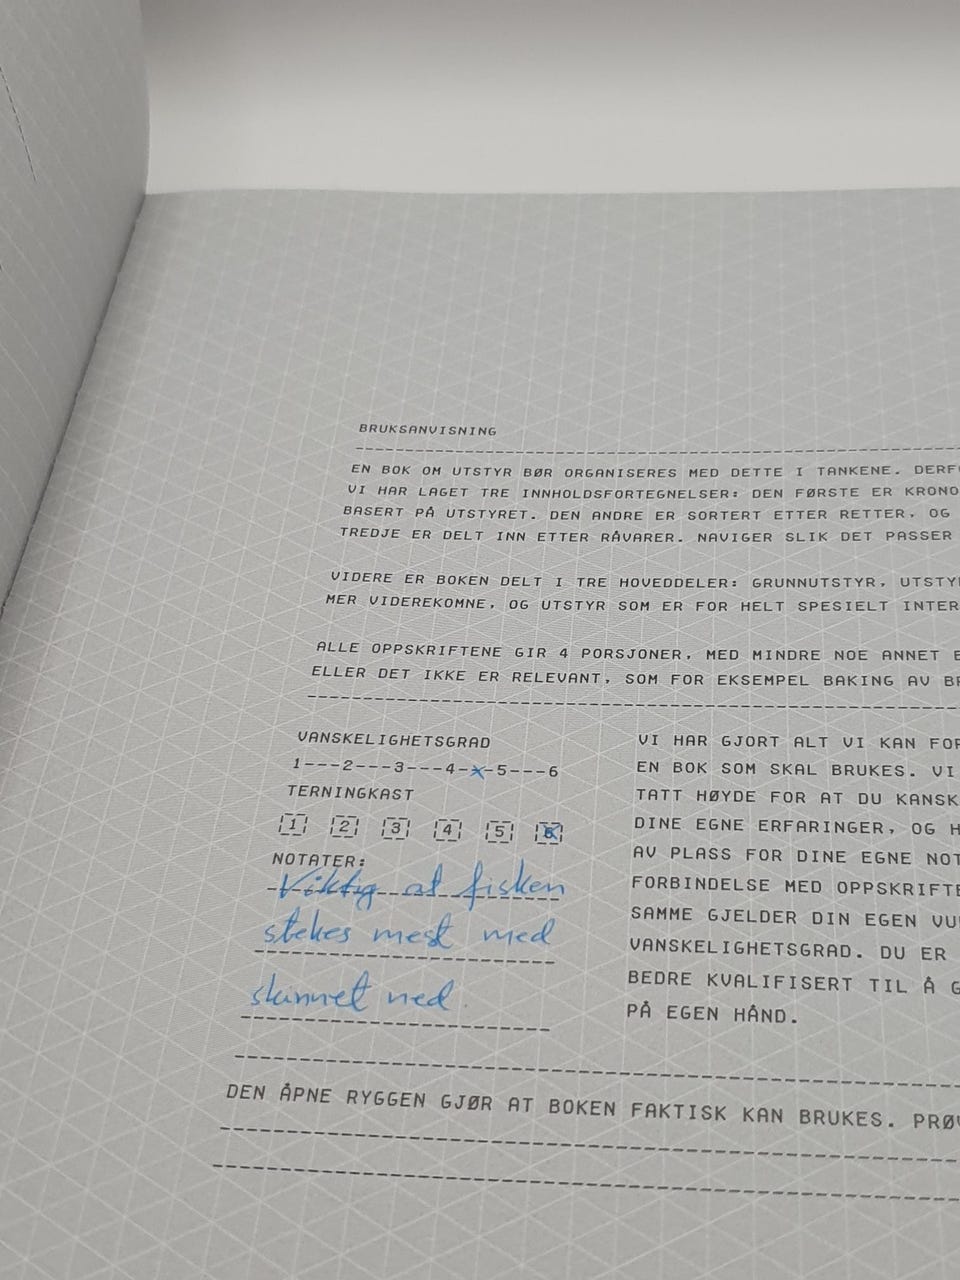 BRUKSANVISNING
EN BOK OM UTSTYR BØR ORGANISERES MED DETTE I TANKENE. DERF
VI HAR LAGET TRE INNHOLDSFORTEGNELSER: DEN FØRSTE ER KRONO
BASERT PÅ UTSTYRET. DEN ANDRE ER SORTERT ETTER RETTER, OG
TREDJE ER DELT INN ETTER RÅVARER. NAVIGER SLIK DET PASSER
VIDERE ER BOKEN DELT I TRE HOVEDDELER: GRUNNUTSTYR, UTSTY
MER VIDEREKOMNE, OG UTSTYR SOM ER FOR HELT SPESIELT INTER
ALLE OPPSKRIFTENE GIR 4 PORSJONER, MED MINDRE NOE ANNET E
ELLER DET IKKE ER RELEVANT, SOM FOR EKSEMPEL BAKING AV B
VANSKELIGHETSGRAD
1---2---3---4-x-5---6
TERNINGKAST
1 2 3 4 5 6
NOTATER:
Viktig at fisken
stekes mest med
skinnet ned.
VI HAR GJORT ALT VI KAN FOR
EN BOK SOM SKAL BRUKES. VI
TATT HØYDE FOR AT DU KANSK
DINE EGNE ERFARINGER, OG H
AV PLASS FOR DINE EGNE NOT
FORBINDELSE MED OPPSKRIFTE
SAMME GJELDER DIN EGEN VU
VANSKELIGHETSGRAD. DU ER
BEDRE KVALIFISERT TIL Å G
PÅ EGEN HÅND.
DEN ÅPNE RYGGEN GJØR AT BOKEN FAKTISK KAN BRUKES. PRØV